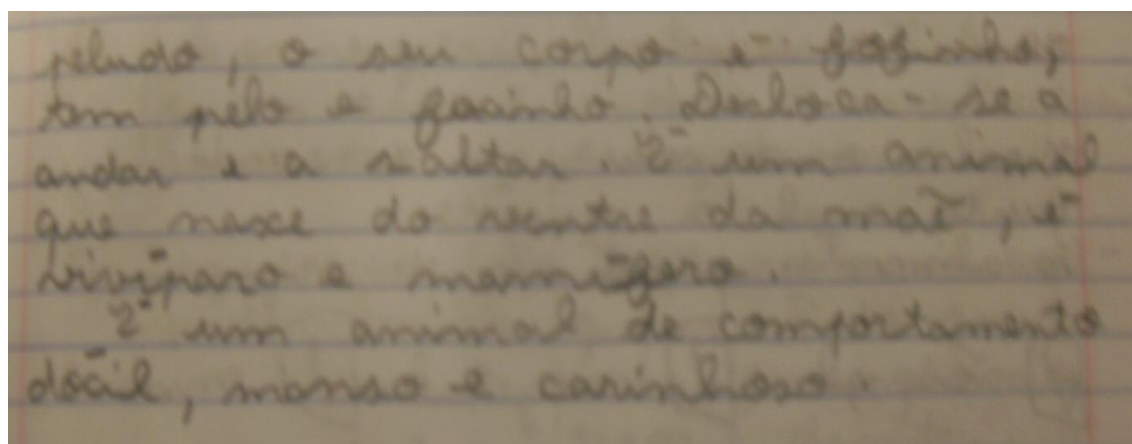 peludo, o seu corpo é fofinho,
tem pelo e focinho. Desloca-se a
andar e a saltar. É um animal
que nasce do ventre da mãe, é
vivíparo e mamífero.
É um animal de comportamento
dócil, manso e carinhoso.